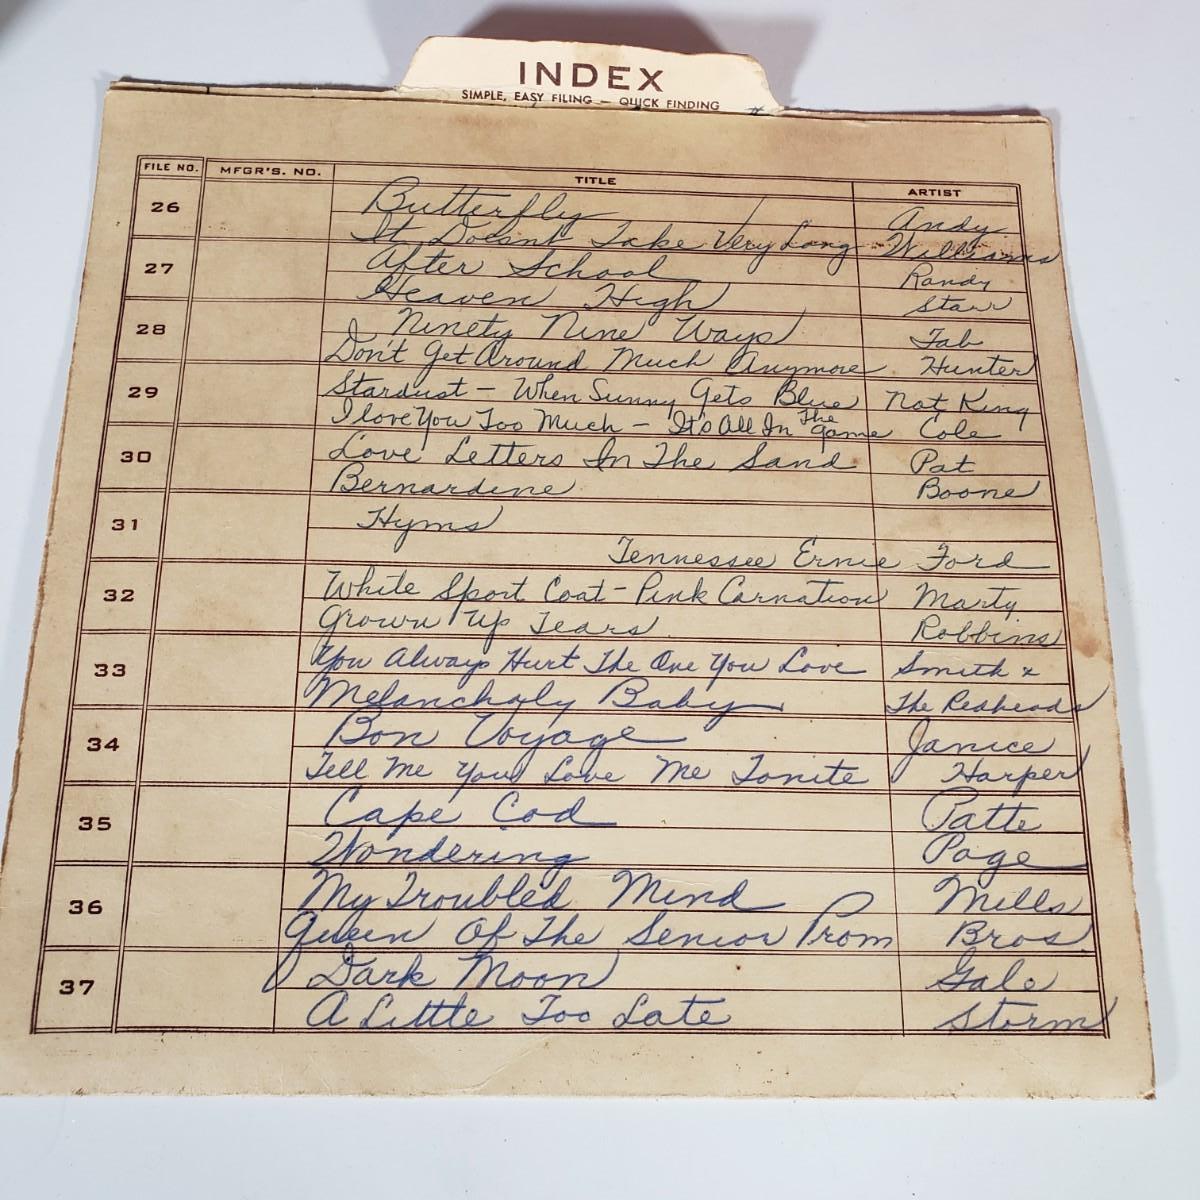 INDEX
SIMPLE, EASY FILING — QUICK FINDING
FILE NO. MFGR'S. NO. TITLE ARTIST
26 Butterfly Andy
It Doesnt Take Very Long Williams
27 After School Randy
Heaven High Starr
28 Ninety Nine Ways Tab
Don't Get Around Much Anymore Hunter
29 Stardust - When Sunny Gets Blue Nat King
I love You Too Much - It's All In The Game Cole
30 Love Letters In The Sand Pat
Bernardine Boone
31 Hyms
Tennessee Ernie Ford
32 White Sport Coat - Pink Carnation Marty
Grown Up Tears Robbins
33 You Always Hurt The One You Love Smith &
Melancholy Baby The Redheads
34 Bon Voyage Janice
Tell Me You Love Me Tonite Harper
35 Cape Cod Patte
Wondering Page
36 My Troubled Mind Mills
Queen Of The Senior Prom Bros.
37 Dark Moon Gale
A Little Too Late Storm